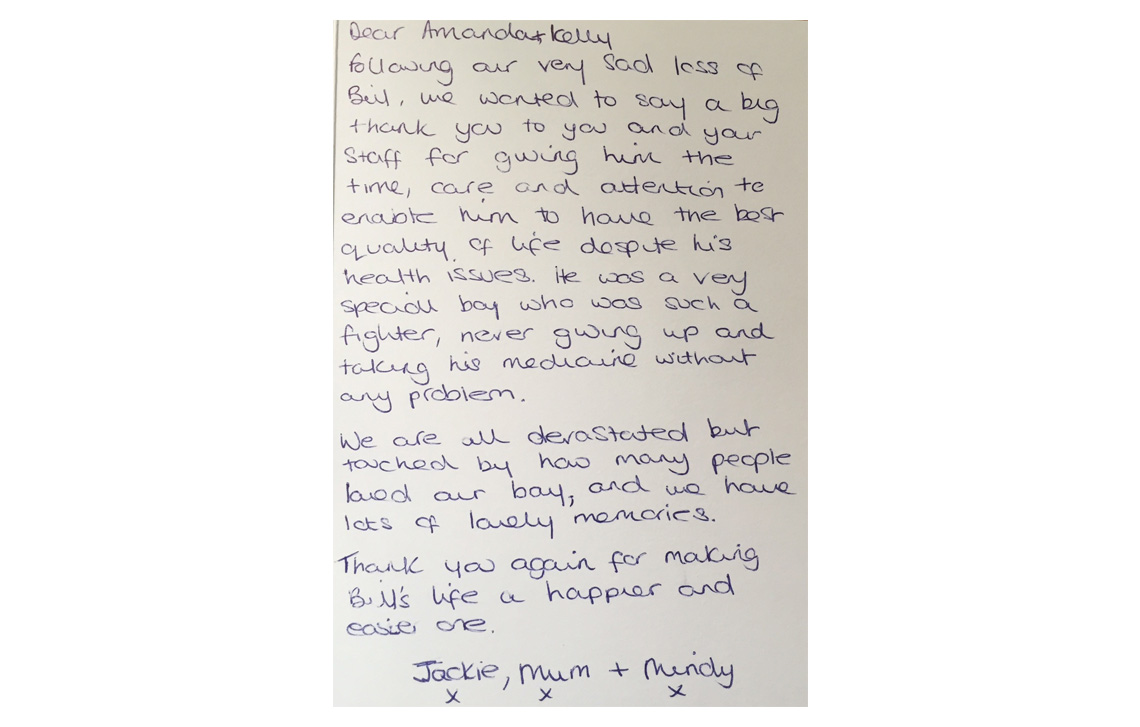 Dear Amanda + Kelly
following our very sad loss of
Bill, we wanted to say a big
thank you to you and your
staff for giving him the
time, care and attention to
enable him to have the best
quality of life despite his
health issues. He was a very
special boy who was such a
fighter, never giving up and
taking his medicine without
any problem.
We are all devastated but
touched by how many people
loved our boy, and we have
lots of lovely memories.
Thank you again for making
Bill's life a happier and
easier one.
Jackie, Mum + Mindy
x x x